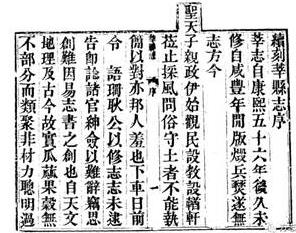 續刻莘縣志序
莘志自康熙五十六年後久未
修自咸豐年間版燬兵燹遂無
志方今
聖天子親政伊始觀民設教輶軒
蒞止採風問俗守土者不能執
簡以對亦邦人羞也下車日前
令 語珊耿公以修志志未逮
告卽諗諸官紳僉以難辭竊思
創難因易志書之創也自天文
地理及古今故實瓜蓏果穀無
不部分而類聚非材力聰明過